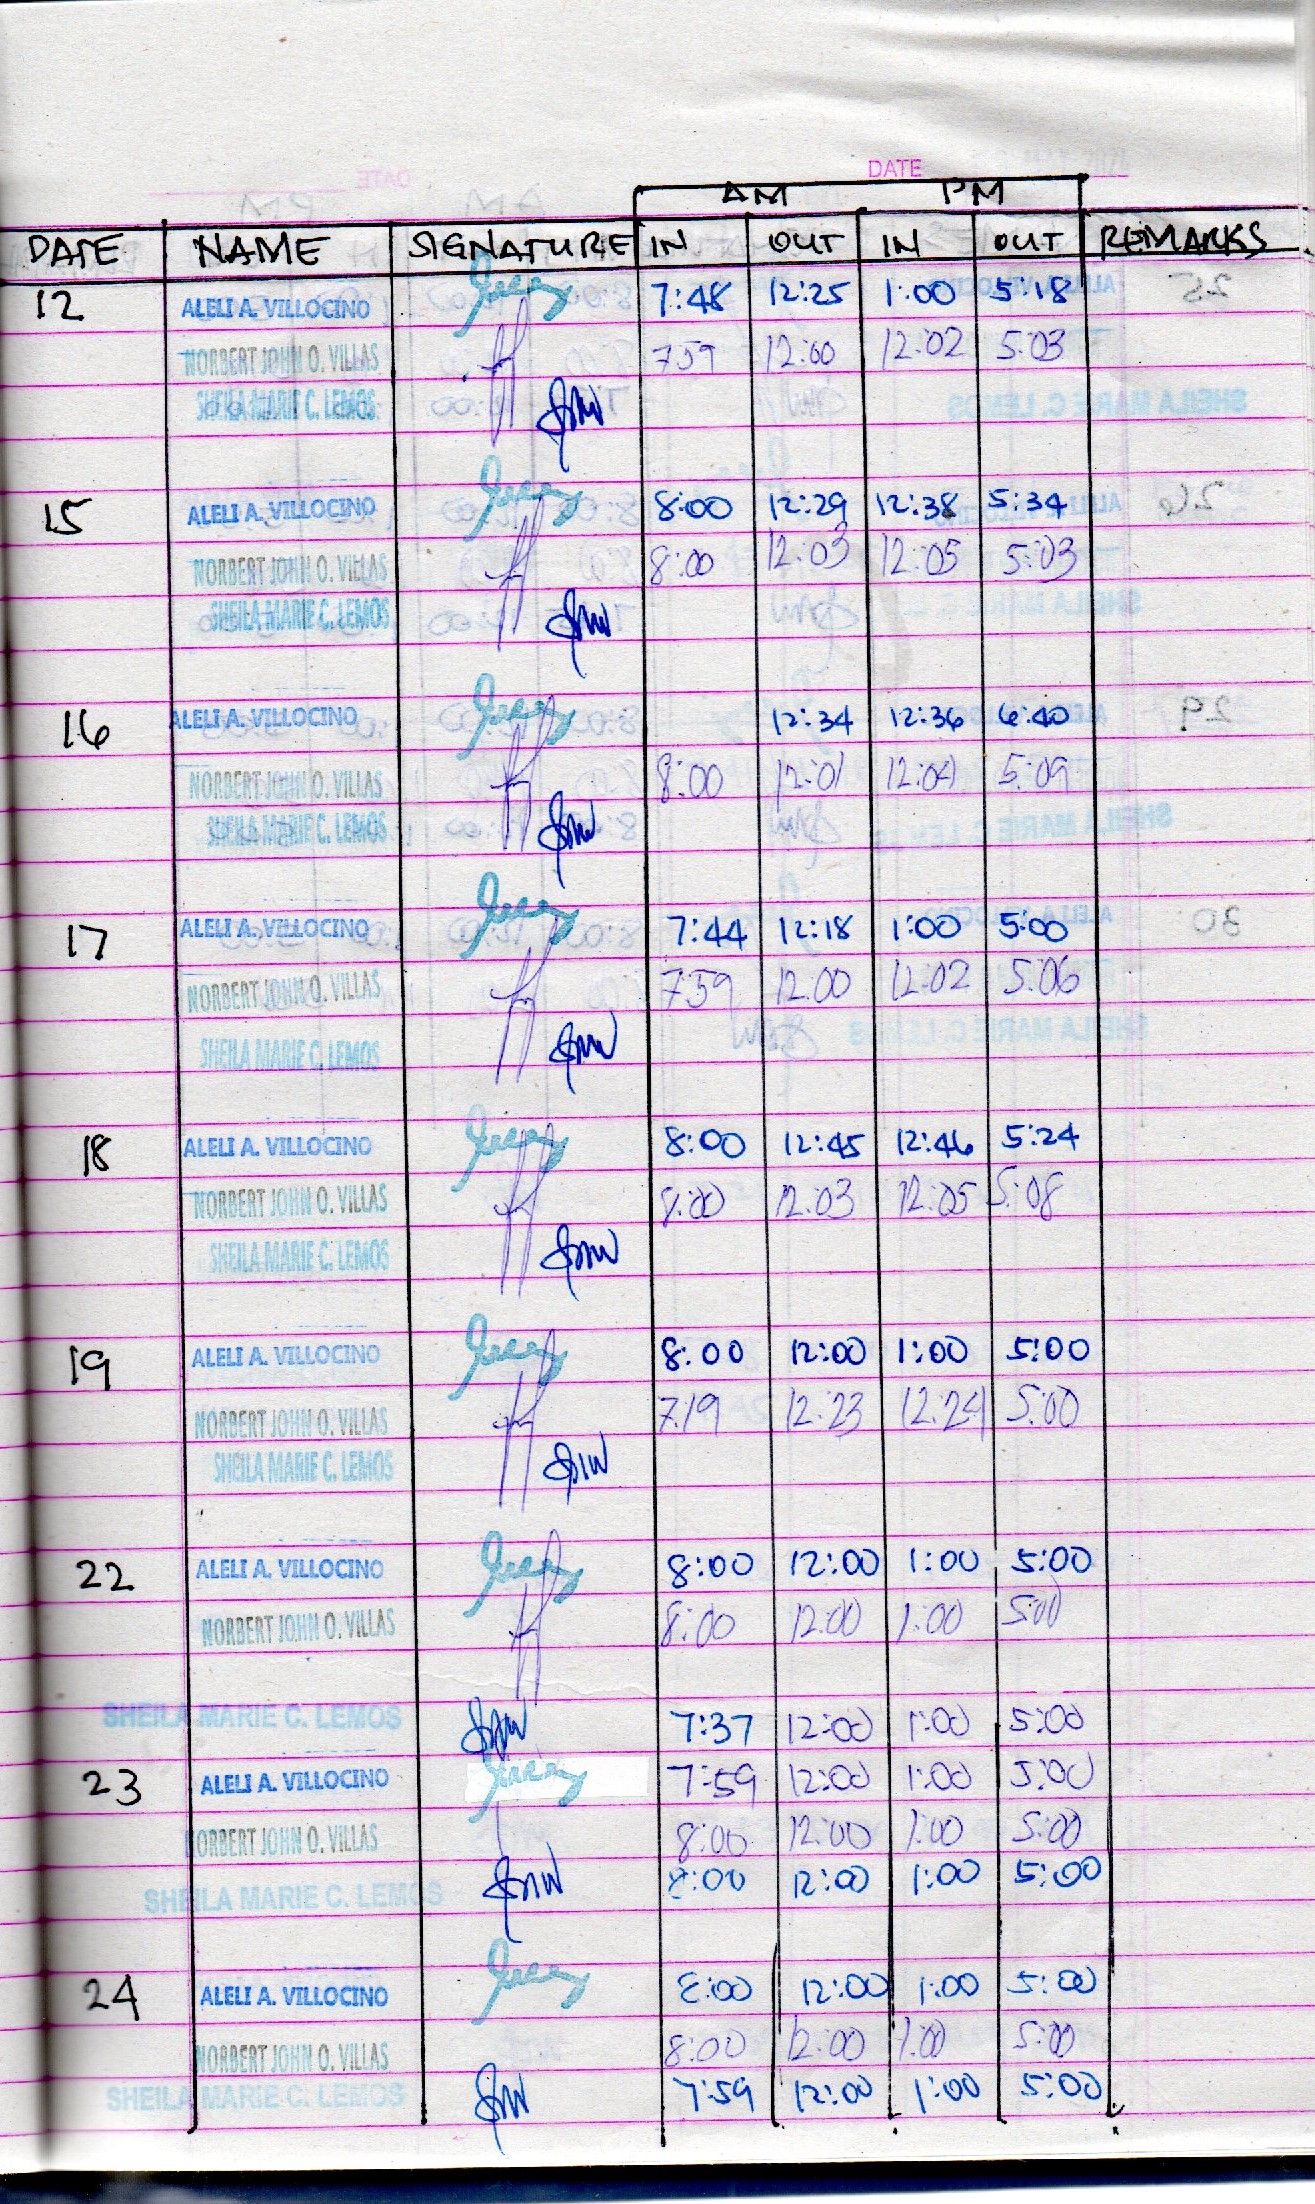 DATE
AM PM
DATE NAME SIGNATURE IN OUT IN OUT REMARKS
12 ALELI A. VILLOCINO 7:48 12:25 1:00 5:18
NORBERT JOHN O. VILLAS 7:59 12:00 12:02 5:03
SHEILA MARIE C. LEMOS
15 ALELI A. VILLOCINO 8:00 12:29 12:38 5:34
NORBERT JOHN O. VILLAS 8:00 12:03 12:05 5:03
SHEILA MARIE C. LEMOS
16 ALELI A. VILLOCINO 12:34 12:36 6:40
NORBERT JOHN O. VILLAS 8:00 12:01 12:04 5:09
SHEILA MARIE C. LEMOS
17 ALELI A. VILLOCINO 7:44 12:18 1:00 5:00
NORBERT JOHN O. VILLAS 7:59 12:00 12:02 5:06
SHEILA MARIE C. LEMOS
18 ALELI A. VILLOCINO 8:00 12:45 12:46 5:24
NORBERT JOHN O. VILLAS 8:00 12:03 12:05 5:08
SHEILA MARIE C. LEMOS
19 ALELI A. VILLOCINO 8:00 12:00 1:00 5:00
NORBERT JOHN O. VILLAS 7:19 12:23 12:24 5:00
SHEILA MARIE C. LEMOS
22 ALELI A. VILLOCINO 8:00 12:00 1:00 5:00
NORBERT JOHN O. VILLAS 8:00 12:00 1:00 5:00
SHEILA MARIE C. LEMOS 7:37 12:00 1:00 5:00
23 ALELI A. VILLOCINO 7:59 12:00 1:00 5:00
NORBERT JOHN O. VILLAS 8:00 12:00 1:00 5:00
SHEILA MARIE C. LEMOS 8:00 12:00 1:00 5:00
24 ALELI A. VILLOCINO 8:00 12:00 1:00 5:00
NORBERT JOHN O. VILLAS 8:00 12:00 1:00 5:00
SHEILA MARIE C. LEMOS 7:59 12:00 1:00 5:00